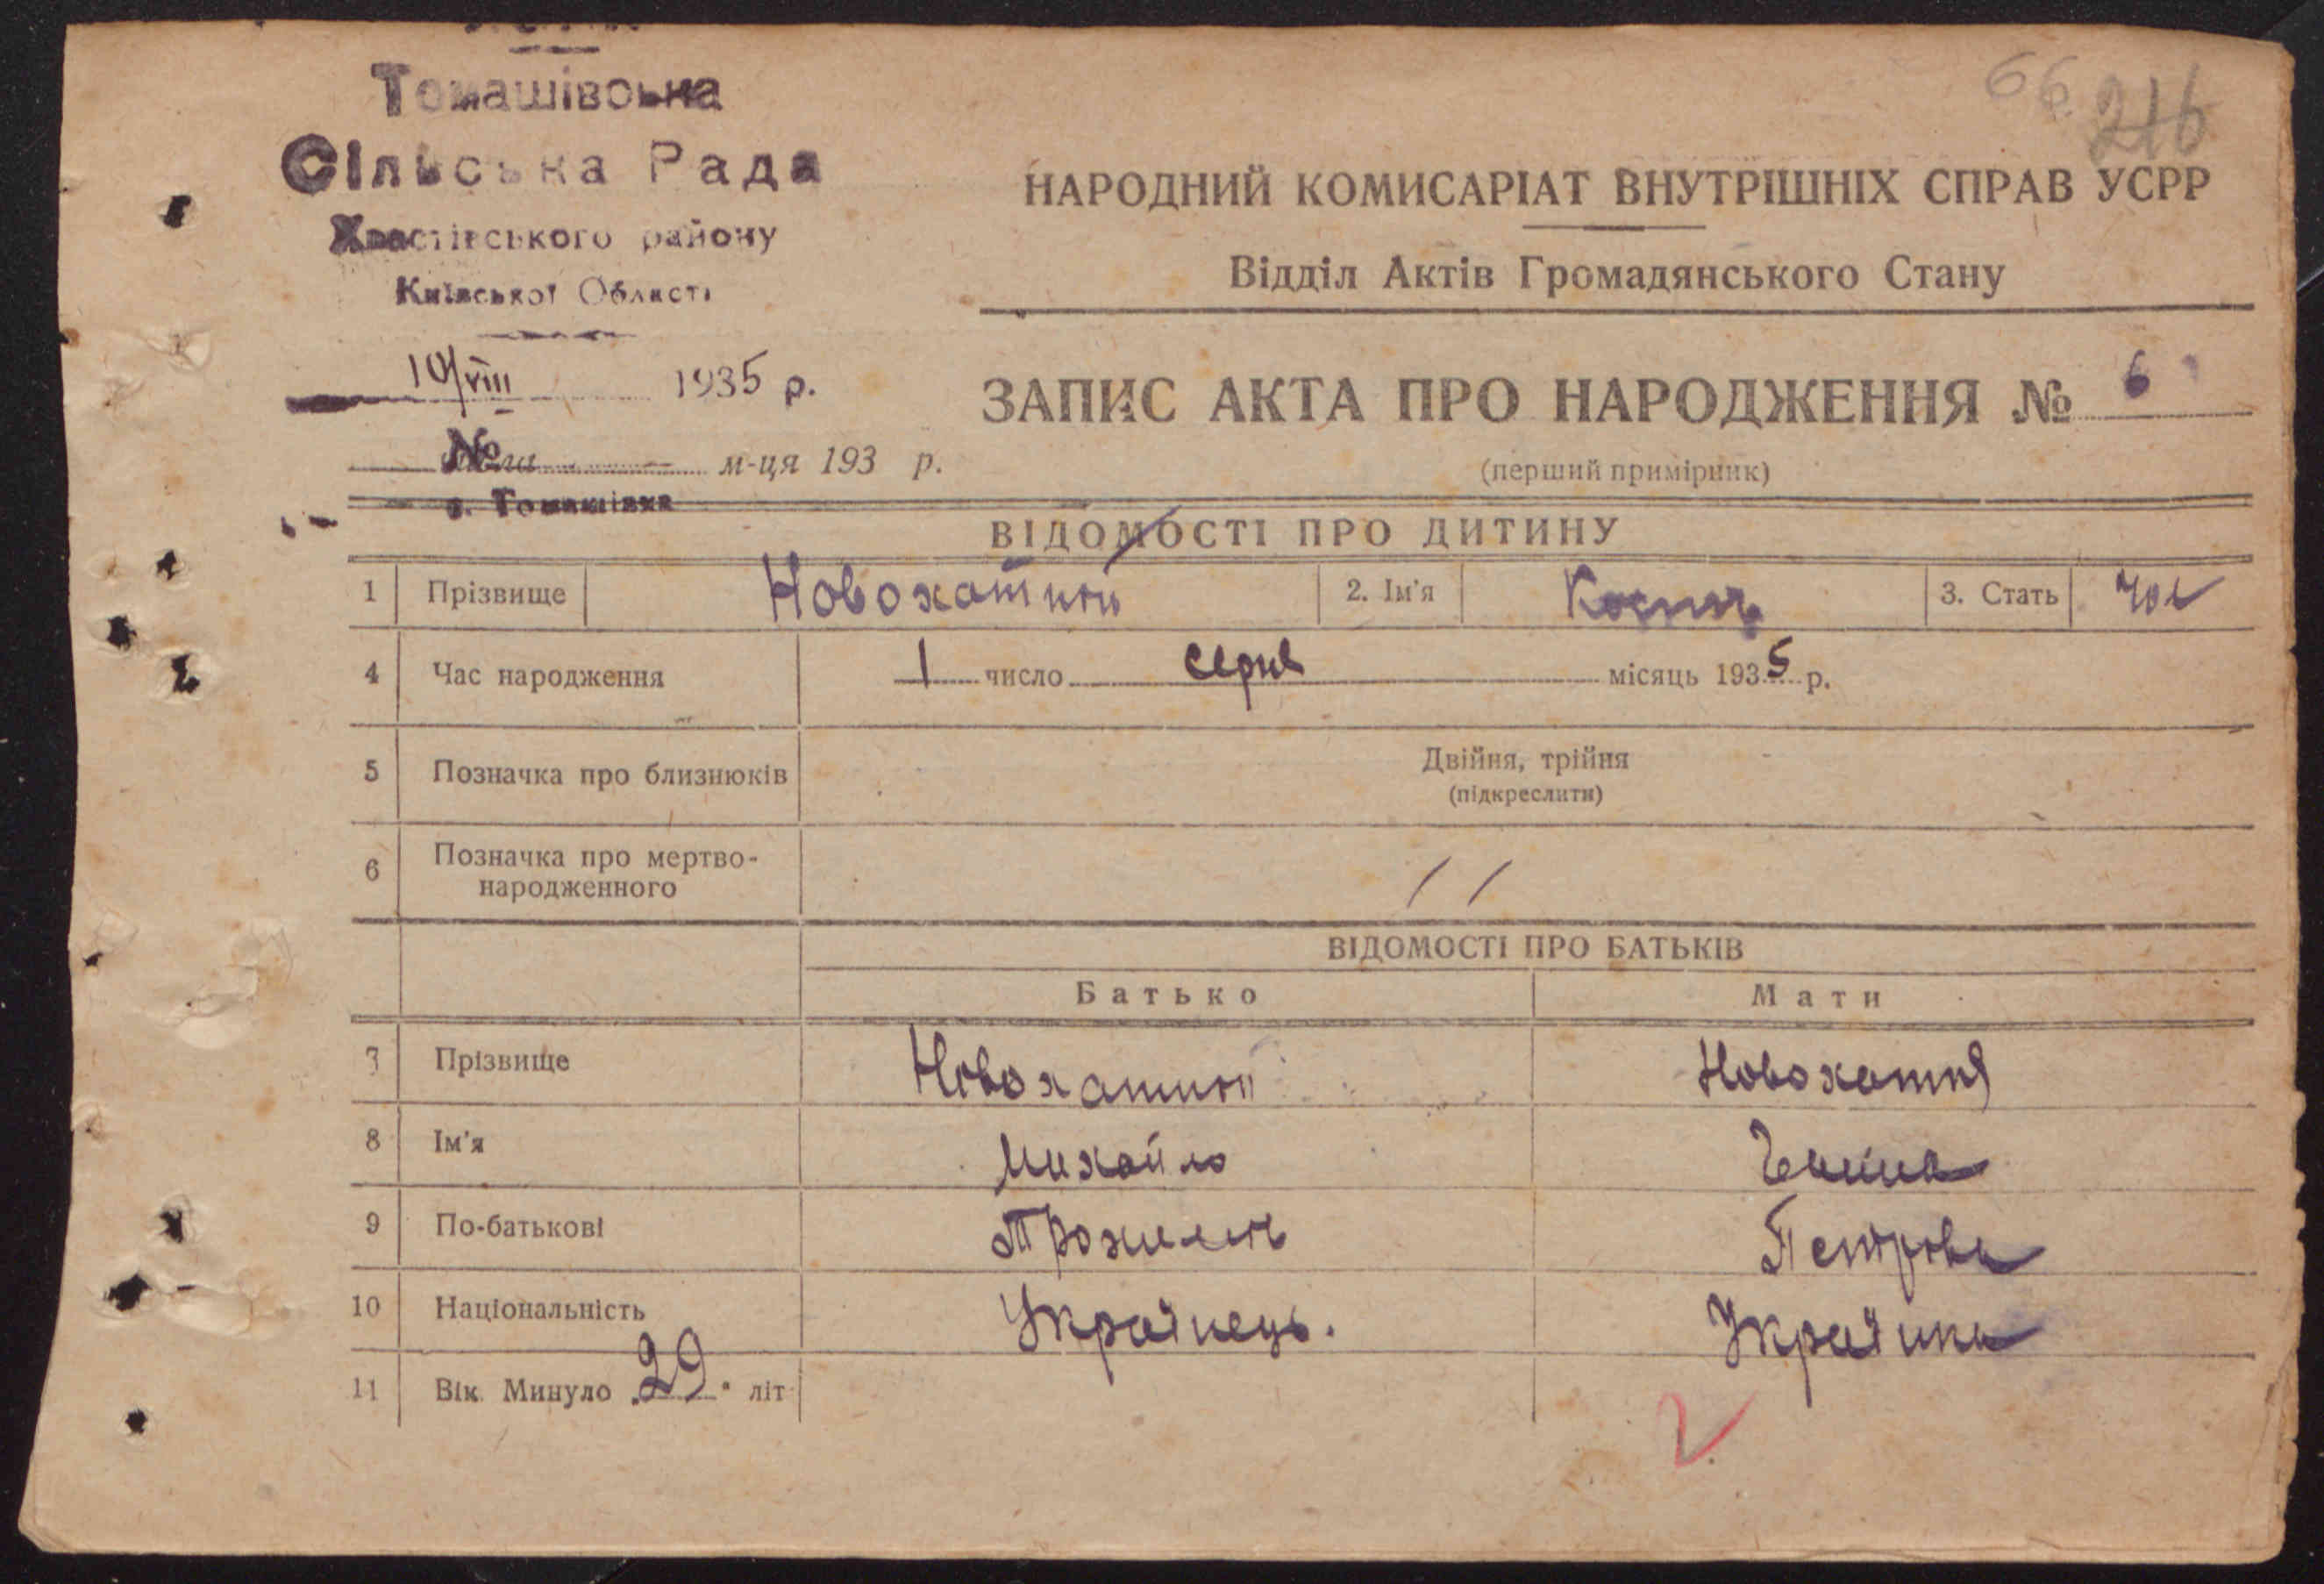 Томашівська
Сільська Рада
Хвастівського району
Київської Области
10/VIII 1935 р.
№
числа м-ця 193 р.
с. Томашівка
66 216
НАРОДНИЙ КОМИСАРІАТ ВНУТРІШНІХ СПРАВ УСРР
Відділ Актів Громадянського Стану
ЗАПИС АКТА ПРО НАРОДЖЕННЯ № 6
(перший примірник)
ВІДОМОСТІ ПРО ДИТИНУ
1 Прізвище Новохатний 2. Ім'я 3. Стать чол
4 Час народження 1 число серпн місяць 1935 р.
5 Позначка про близнюків Двійня, трійня
(підкреслити)
6 Позначка про мертво-
народженного / /
ВІДОМОСТІ ПРО БАТЬКІВ
Батько Мати
7 Прізвище Новохатний Новохатня
8 Ім'я Михайло
9 По-батькові Петрова
10 Національність Українець. Українка
11 Вік. Минуло 29 літ